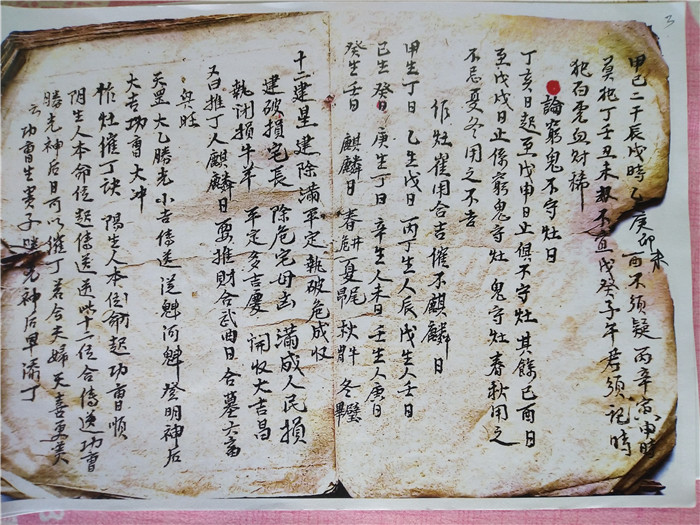 3
甲己二干辰戌時 乙庚卯未酉不須疑 丙辛 申時
莫犯丁壬丑未 不 戊癸子午君須記時
犯白虎血財稀
論窮鬼不守灶日
丁亥日起至戊申日止俱不守灶 其餘己酉日
至戊戌日止係窮鬼守灶 鬼守灶春秋用之
不忌夏冬用之不吉
作灶 用合吉催不麒麟日
甲生丁日 乙生戊日 丙丁生人辰 戊生人壬日
己生癸日 庚生丁日 辛生人未日 壬生人庚日
癸生壬日 麒麟日 春 井 夏尾 秋牛 冬壁
十二建星 建除滿平定執破危成收
建破損宅長 除危宅母凶 滿成人民損
執閉損牛羊 平定多吉慶 開收大吉昌
又曰推丁人麒麟日要推財合武曲日合墓大富
與旺
天罡 大乙 勝光 小吉 傳送 從魁 河魁 登明 神后
大吉 功曹 大冲
作灶催丁訣 陽生人本位 起功曹日順
陰生人本命位起傳送逆此十二位合傳送功曹
勝光神后日可以催丁若合夫婦天喜更美
云功曹生貴子勝光神后早添丁